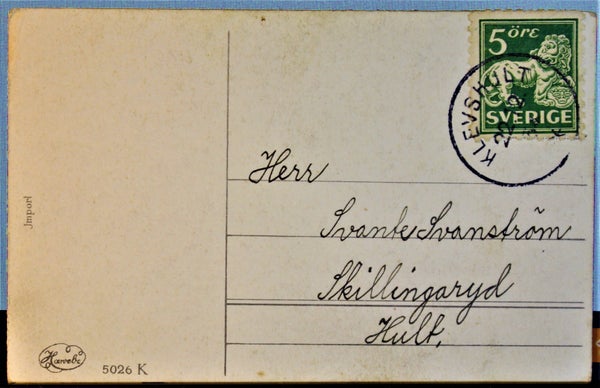 5 ÖRE
SVERIGE
KLEVSHULT
22 12
Herr
Svante Svanström
Skillingaryd
Hult.
Import
5026 K